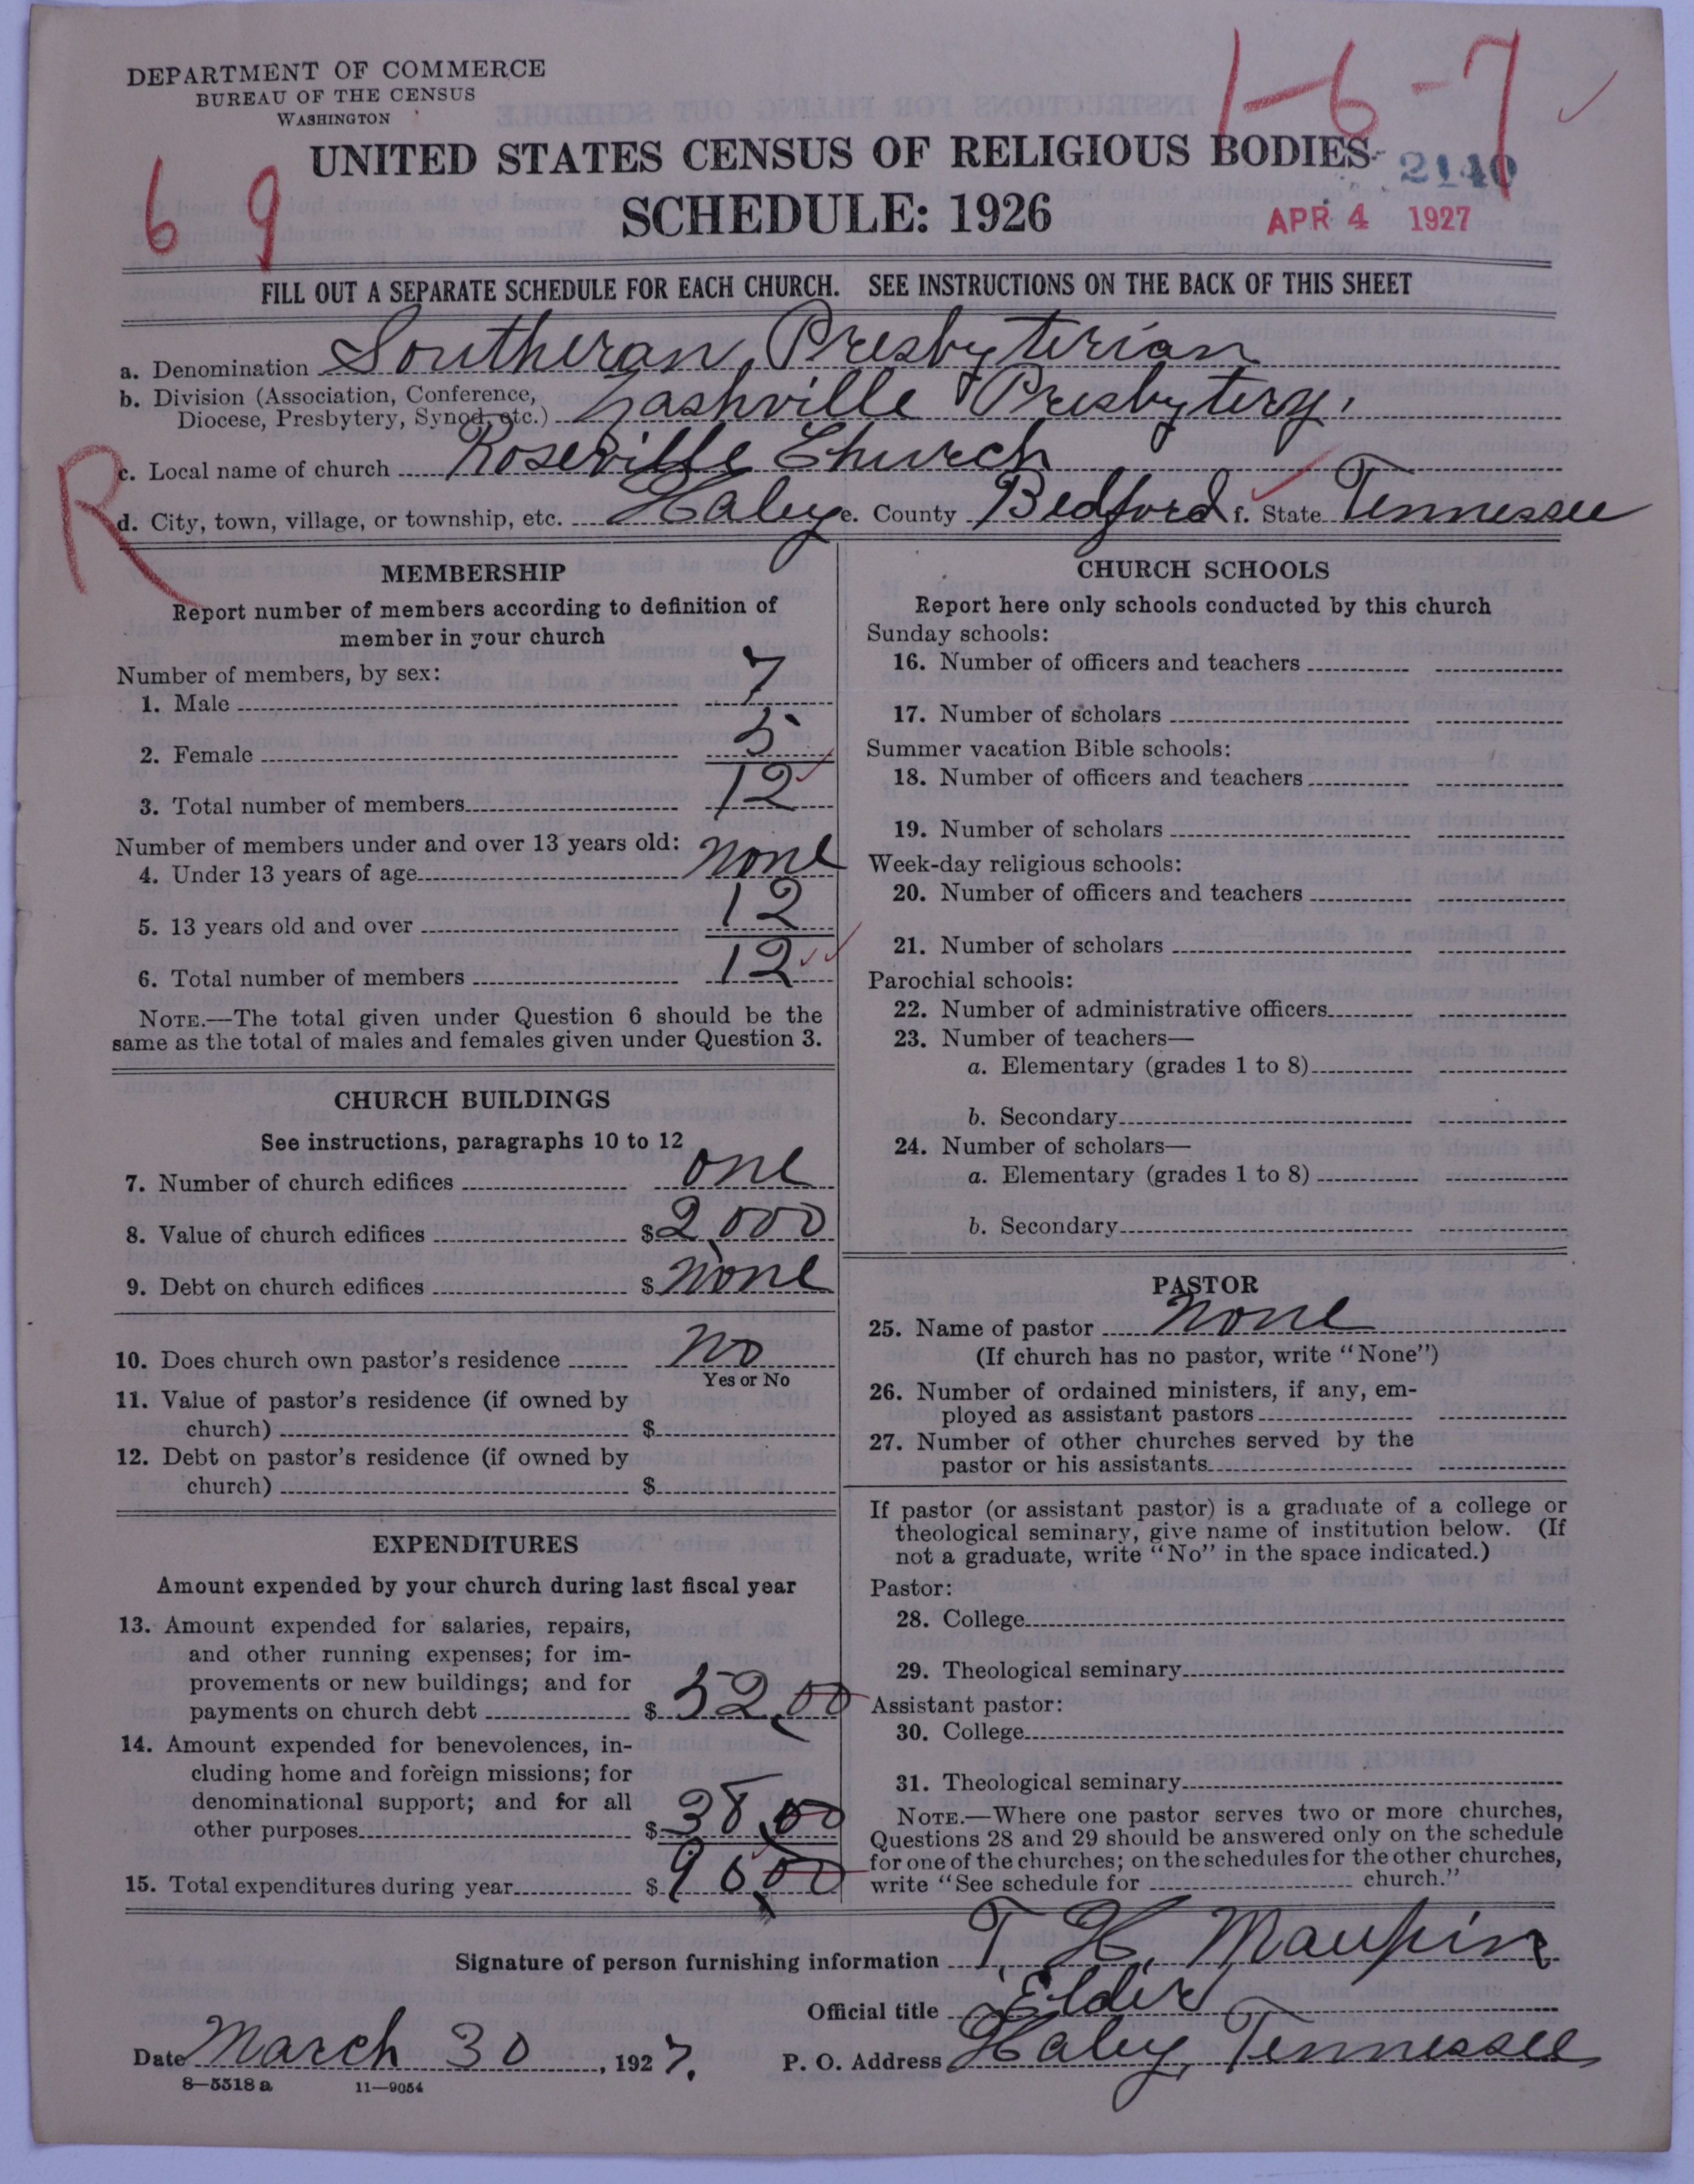 1-6-7
DEPARTMENT OF COMMERCE
BUREAU OF THE CENSUS
WASHINGTON
UNITED STATES CENSUS OF RELIGIOUS BODIES
2140
6 9
SCHEDULE: 1926
APR 4 1927
FILL OUT A SEPARATE SCHEDULE FOR EACH CHURCH. SEE INSTRUCTIONS ON THE BACK OF THIS SHEET
a. Denomination Southeran Presbyterian
b. Division (Association, Conference,
Diocese, Presbytery, Synod, etc.) Nashville Presbytery.
R
c. Local name of church Roseville Church
d. City, town, village, or township, etc. Haley e. County Bedford f. State Tennessee
MEMBERSHIP
Report number of members according to definition of
member in your church
Number of members, by sex:
1. Male 7
2. Female 5
3. Total number of members 12
Number of members under and over 13 years old:
4. Under 13 years of age none
5. 13 years old and over 12
6. Total number of members 12
NOTE.—The total given under Question 6 should be the
same as the total of males and females given under Question 3.
CHURCH BUILDINGS
See instructions, paragraphs 10 to 12
7. Number of church edifices one
8. Value of church edifices $2,000
9. Debt on church edifices $ none
10. Does church own pastor's residence no
Yes or No
11. Value of pastor's residence (if owned by
church) $
12. Debt on pastor's residence (if owned by
church) $
EXPENDITURES
Amount expended by your church during last fiscal year
13. Amount expended for salaries, repairs,
and other running expenses; for im-
provements or new buildings; and for
payments on church debt $ 52.00
14. Amount expended for benevolences, in-
cluding home and foreign missions; for
denominational support; and for all
other purposes $ 38.00
15. Total expenditures during year $ 90.00
CHURCH SCHOOLS
Report here only schools conducted by this church
Sunday schools:
16. Number of officers and teachers
17. Number of scholars
Summer vacation Bible schools:
18. Number of officers and teachers
19. Number of scholars
Week-day religious schools:
20. Number of officers and teachers
21. Number of scholars
Parochial schools:
22. Number of administrative officers
23. Number of teachers—
a. Elementary (grades 1 to 8)
b. Secondary
24. Number of scholars—
a. Elementary (grades 1 to 8)
b. Secondary
PASTOR
25. Name of pastor none
(If church has no pastor, write "None")
26. Number of ordained ministers, if any, em-
ployed as assistant pastors
27. Number of other churches served by the
pastor or his assistants
If pastor (or assistant pastor) is a graduate of a college or
theological seminary, give name of institution below. (If
not a graduate, write "No" in the space indicated.)
Pastor:
28. College
29. Theological seminary
Assistant pastor:
30. College
31. Theological seminary
NOTE.—Where one pastor serves two or more churches,
Questions 28 and 29 should be answered only on the schedule
for one of the churches; on the schedules for the other churches,
write "See schedule for church."
Signature of person furnishing information T. H. Maupin
Official title Elder
Date March 30, 1927. P. O. Address Haley, Tennessee
8—5518 a 11—9054